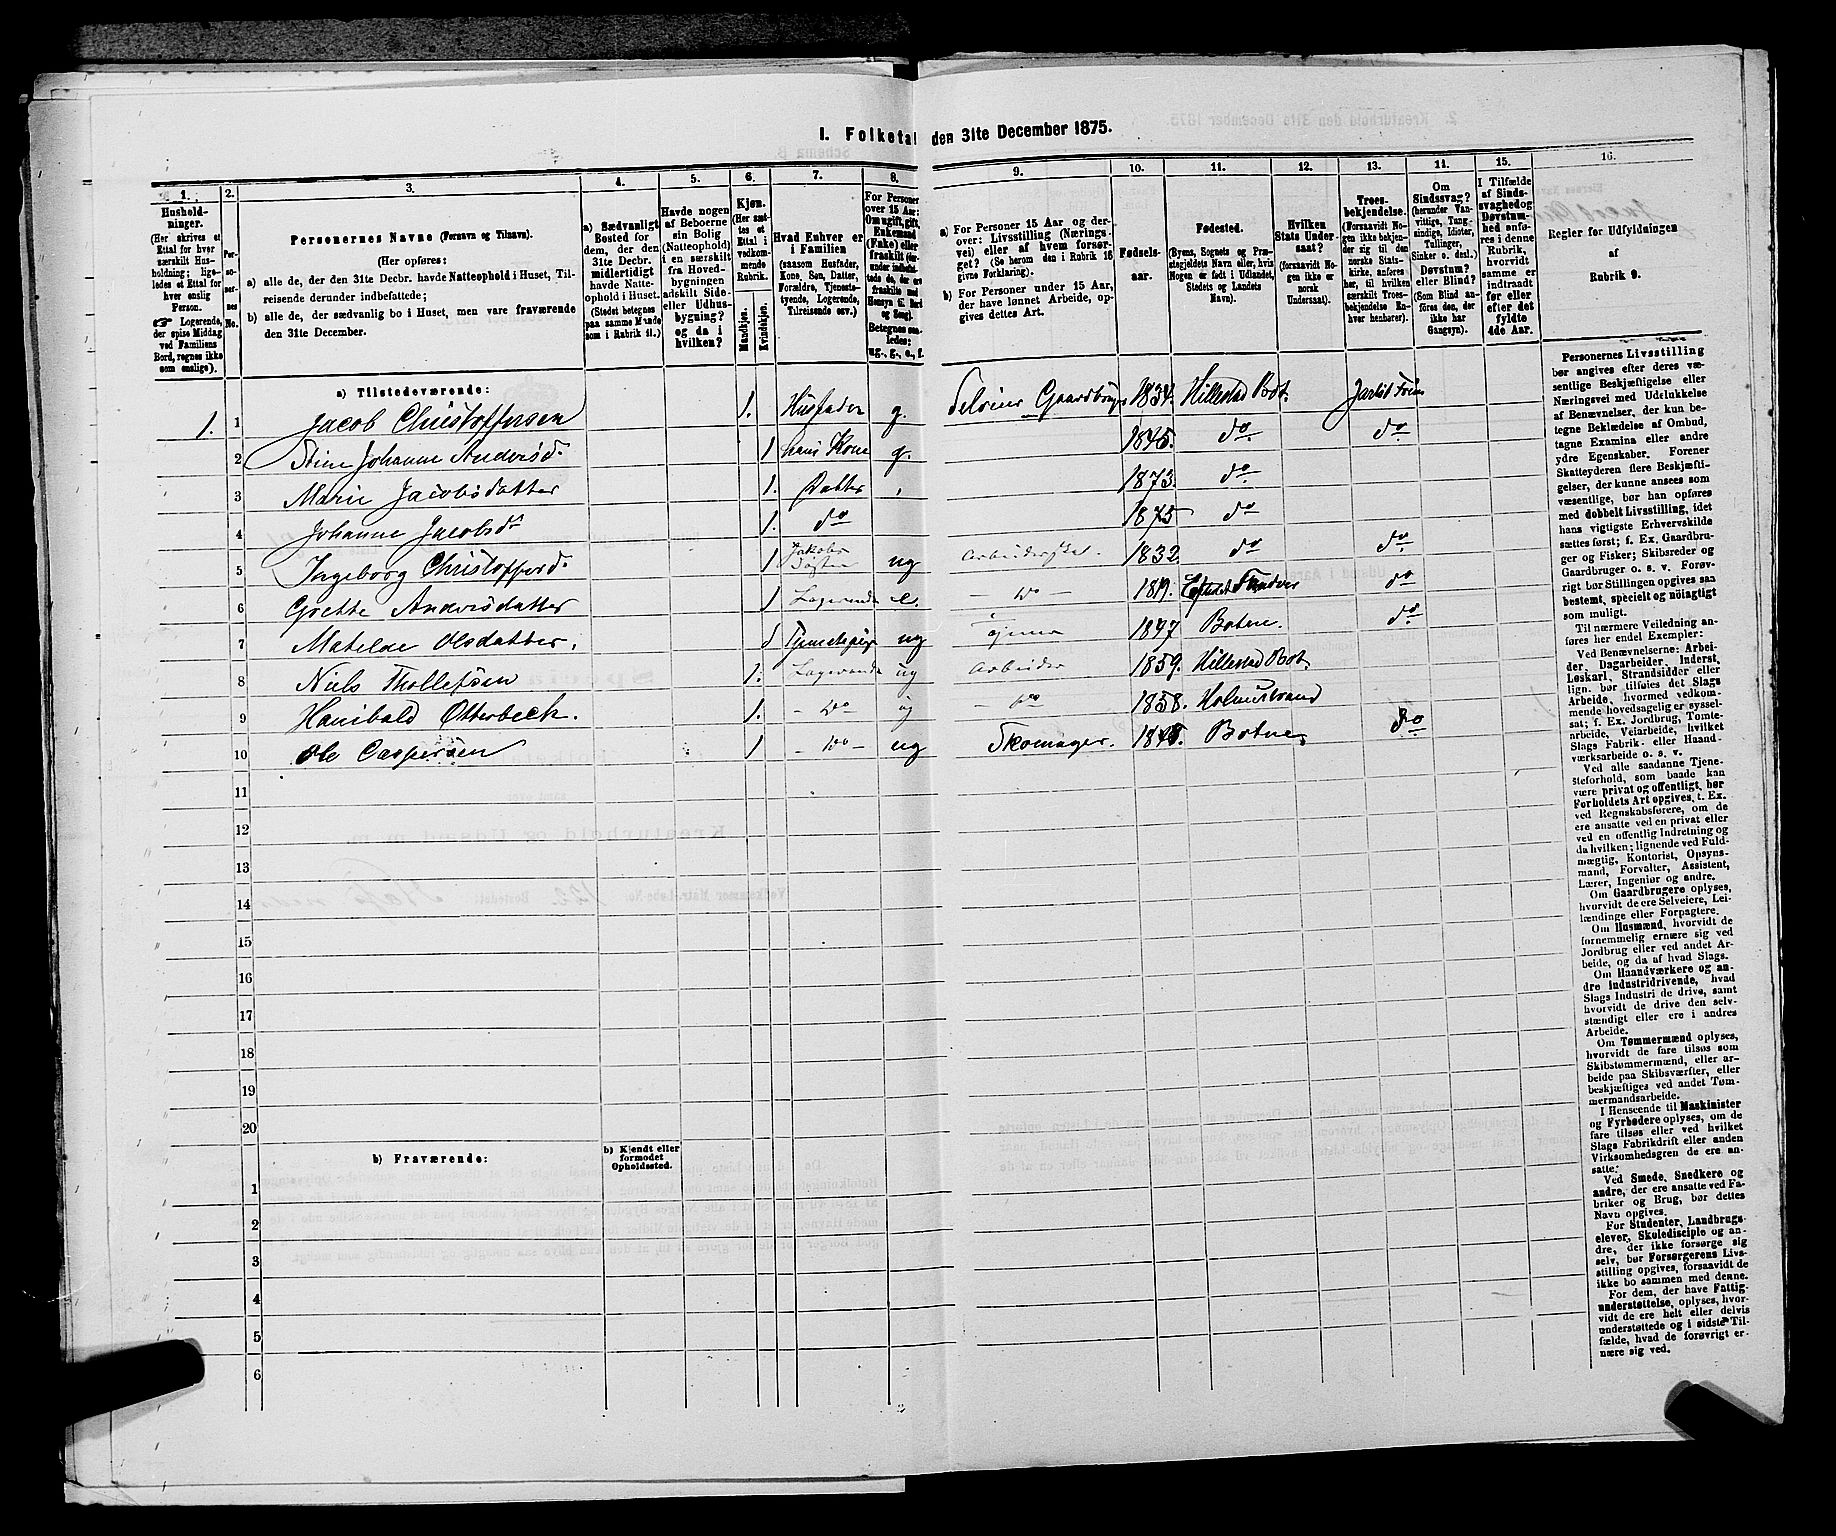 I. Folketal den 31te December 1875.
1. 2. 3. 4. 5. 6. 7. 8. 9. 10. 11. 12. 13. 14. 15. 16.
Hushold-
ninger.
(Her skrives et
Ettal for hver
særskilt Hus-
holdning; lige-
ledes et Ettal for
hver enslig
Person.
☞ Logerende,
der spise Middag
ved Familiens
Bord, regnes ikke
som enslige).
Per-
soner-
nes
No.
Personernes Navne (Fornavn og Tilnavn).
(Her opføres:
a) alle de, der den 31te Decbr. havde Natteophold i Huset, Til-
reisende derunder indbefattede;
b) alle de, der sædvanlig bo i Huset, men vare fraværende
den 31te December.
a) Sædvanligt
Bosted for
dem, der den
31te Decbr.
midlertidigt
havde Natte-
ophold i Huset.
(Stedet betegnes
paa samme Maade
som i Rubrik 11.)
Havde nogen
af Beboerne
sin Bolig
(Natteophold)
i en særskilt
fra Hoved-
bygningen
adskilt Side-
eller Udhus-
bygning?
og da i
hvilken?
Kjøn.
(Her sæt-
tes et
Ettal i
vedkom-
mende
Rubrik.
Mandkjøn.
Kvindekjøn.
Hvad Enhver er
i Familien
(saasom Husfader,
Kone, Søn, Datter,
Forældre, Tjeneste-
tyende, Logerende,
Tilreisende osv.)
For Personer
over 15 Aar:
Om ugift, gift,
Enkemand
(Enke) eller
fraskilt
Betegnes saa-
ledes:
ug., g., e., f.
a) For Personer 15 Aar og der-
over: Livsstilling (Nærings-
vei) eller af hvem forsør-
get? (Se herom den i Rubrik 16
givne Forklaring).
b) For Personer under 15 Aar,
der have lønnet Arbeide, op-
gives dettes Art.
Fødsels-
aar.
Fødested.
(Byens, Sognets og Præ-
stegjeldets Navn eller, hvis
Nogen er født i Udlandet,
Stedets og Landets
Navn).
Hvilken
Stats Under-
saat?
(forsaavidt No-
gen ikke er
norsk
Undersaat).
Troes-
bekjendelse.
(Forsaavidt No-
gen ikke bekjen-
der sig til den
norske Stats-
kirke, anføres
her, til hvilket
særskilt Troes-
bekjendelse En-
hver henhører).
Om
Sindssvag?
(herunder Van-
vittige, Tung-
sindige, Idioter,
Tullinger,
Sinker o. desl.)
Døvstum?
eller Blind?
(Som Blind an-
føres den, der
ikke har
Gangsyn).
I Tilfælde
af Sinds-
svaghed og
Døvstum-
hed anfø-
res i denne
Rubrik,
hvorvidt
samme er
indtraadt
før eller
efter det
fyldte
4de Aar.
Regler for Udfyldningen
af
Rubrik 9.
a) Tilstedeværende:
1. 1 Jacob Christoffersen 1. Husfader g. Selveier Gaardbruger 1834. Hillestad Bot.
2 Stine Johanne Andersd. 1 hans Kone g. 1845. do do
3 Marie Jacobsdatter 1. Datter 1873. do
4 Johanne Jacobsd 1. do 1875 do
5 Ingeborg Christofferd. 1 Jakobs Søster ug 1832. do do
6 Grethe Andersdatter 1 Logerende e. - do - do
7 Matilde Olsdatter. 1 ug 1847 Botne. do
8 Niels Thollefsen 1. Logerende ug Arbeider 1859. Hillestad Bot.
9 Hanibald Otterbeck. 1. - do - ug - do 1858. Holmestrand
10 Ole Caspersen 1 - do - ug Skomager. Botne do
11
12
13
14
15
16
17
18
19
20
b) Fraværende:
b) Kjendt eller
formodet
Opholdssted.
1
2
3
4
5
6
Personernes Livsstilling
bør angives efter deres væ-
sentlige Beskjæftigelse eller
Næringsvei med Udelukkelse
af Benævnelser, der kun be-
tegne Beklædelse af Ombud,
tagne Examina eller andre
ydre Egenskaber. Forener
Skatteyderen flere Beskjæfti-
gelser, der kunne ansees som
væsentlige, bør han opføres
med dobbelt Livsstilling, idet
hans vigtigste Erhvervskilde
sættes først; f. Ex. Gaardbru-
ger og Fisker; Skibsreder og
Gaardbruger o. s. v. Forøv-
rigt bør Stillingen opgives saa
bestemt, specielt og nøiagtigt
som muligt.
Til nærmere Veiledning an-
føres her endel Exempler:
Ved Benævnelserne: Arbei-
der, Dagarbeider, Inderst,
Løskarl, Strandsidder eller
lign. bør tilføies det Slags
Arbeide, hvormed vedkom-
mende hovedsagelig er syssel-
sat; f. Ex. Jordbrug, Tomte-
arbeide, Veiarbeide, hvilket
Slags Fabrik- eller Haand-
værksarbeide o. s. v.
Ved alle saadanne Tjene-
steforhold, som baade kan
være privat og offentligt, bør
Forholdets Art opgives, t. Ex.
ved Regnskabsførere, om de
ere ansatte ved en privat eller
ved en offentlig Indretning og
da hvilken; lignende ved Fuld-
mægtig, Kontorist, Opsyns-
mand, Forvalter, Assistent,
Lærer, Ingeniør og andre.
Om Gaardbrugere oplyses,
hvorvidt de ere Selveiere, Lei-
lændinge eller Forpagtere.
Om Husmænd, hvorvidt de
fornemmelig ernære sig ved
Jordbrug eller ved andet Ar-
beide, og da af hvad Slags.
Om Haandværkere og an-
dre Industridrivende, hvad
Slags Industri de drive, samt
hvorvidt de drive den selv-
stændigt eller ere i andres
Arbeide.
Om Tømmermænd oplyses,
hvorvidt de fare tilsøs som
Skibstømmermænd, eller ar-
beide paa Skibsværfter, eller
beskjæftiges ved andet Tøm-
mermandsarbeide.
I Henseende til Maskinister
og Fyrbødere oplyses, om de
fare tilsøs eller ved hvilket
Slags Fabrikdrift eller anden
Virksomhedsgren de ere an-
satte.
Ved Smede, Snedkere og
andre, der ere ansatte ved Fa-
briker og Brug, bør dettes
Navn opgives.
For Studenter, Landbrugs-
elever, Skoledisciple og an-
dre, der ikke forsørge sig
selv, bør Forsørgerens Livs-
stilling opgives, forsaavidt de
ikke bo sammen med denne.
For dem, der have Fattig-
understøttelse, oplyses, hvor-
vidt de ere helt eller delvis
understøttede og i sidste Til-
fælde, hvad de forøvrigt er-
nære sig ved.